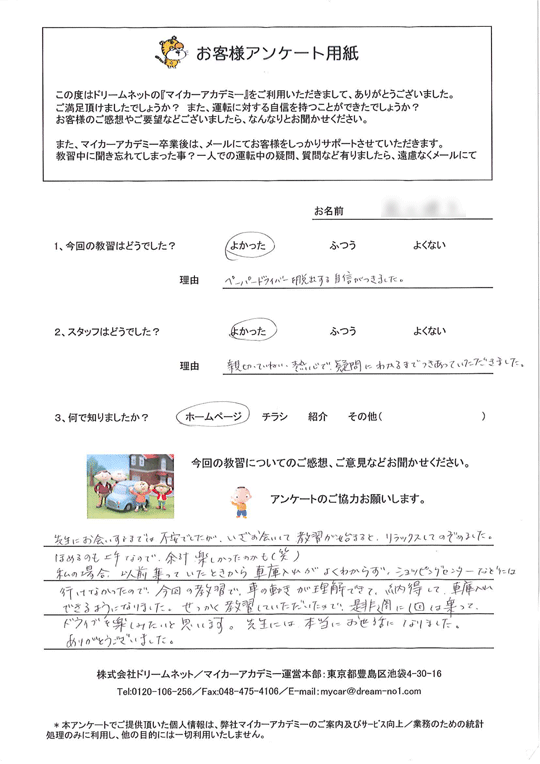 お客様アンケート用紙
この度はドリームネットの『マイカーアカデミー』をご利用いただきまして、ありがとうございました。
ご満足頂けましたでしょうか？ また、運転に対する自信を持つことができたでしょうか？
お客様のご感想やご要望などございましたら、なんなりとお聞かせください。
また、マイカーアカデミー卒業後は、メールにてお客様をしっかりサポートさせていただきます。
教習中に聞き忘れてしまった事？一人での運転中の疑問、質問など有りましたら、遠慮なくメールにて
お名前
1、今回の教習はどうでした？ よかった ふつう よくない
理由 ペーパードライバー脱出する自信がつきました。
2、スタッフはどうでした？ よかった ふつう よくない
理由 親切、ていねい、熱心で、疑問にわかるまでつきあっていただきました。
3、何で知りましたか？ ホームページ チラシ 紹介 その他( )
今回の教習についてのご感想、ご意見などお聞かせください。
アンケートのご協力お願いします。
先生にお会いするまでは不安でしたが、いざお会いして教習が始まると、リラックスしてのぞめました。
ほめるのも上手なので、余計楽しかったのかも(笑)
私の場合、以前乗っていたときから車庫入れがよくわからず、ショッピングセンターなどには
行けなかったので、今回の教習で、車の動きが理解できて、納得して、車庫入れ
できるようになりました。せっかく教習していただいたので、是非、週に1回は乗って、
ドライブを楽しみたいと思います。先生には本当にお世話になりました。
ありがとうございました。
株式会社ドリームネット／マイカーアカデミー運営本部：東京都豊島区池袋4-30-16
Tel:0120-106-256／Fax:048-475-4106／E-mail：mycar@dream-no1.com
＊本アンケートでご提供頂いた個人情報は、弊社マイカーアカデミーのご案内及びサービス向上／業務のための統計
処理のみに利用し、他の目的には一切利用いたしません。